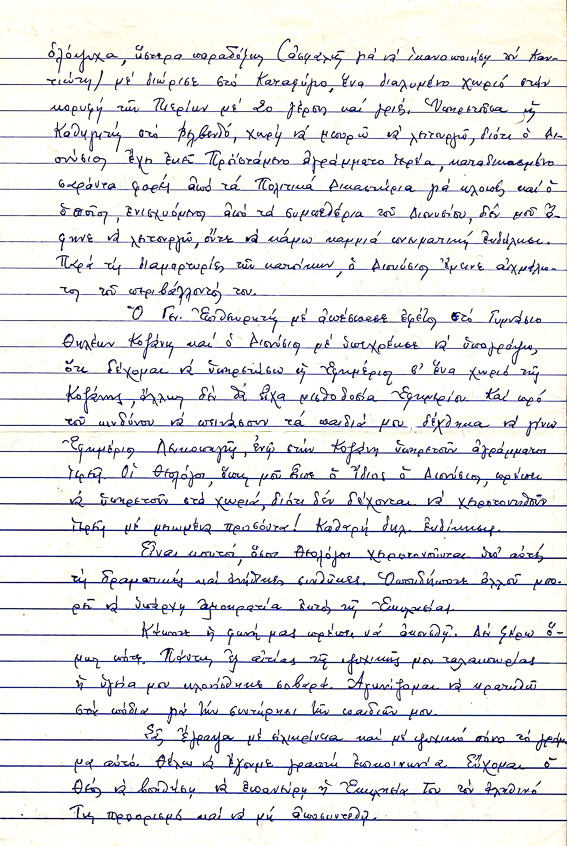 ὁλόψυχα, ὕστερα παραδόξως (ἀσφαλῶς γιά νά ἱκανοποιήσῃ τόν Καν-
τιώτη) μέ διώρισε στό Καταφύγιο, ἕνα διαλυμένο χωριό στήν
κορυφή τῶν Πιερίων μέ 20 γέρους καί γριές. Ὑπηρετοῦσα ὡς
Καθηγητής στό Βελβενδό, χωρίς νά μπορῶ νά λειτουργῶ, διότι ὁ Δι-
ονύσιος ἔχει ἐκεῖ Προϊστάμενο ἀγράμματο ἱερέα, καταδικασμένο
σαράντα φορές ἀπό τά Πολιτικά Δικαστήρια γιά κλοπές καί ὁ
ὁποῖος, ἐνισχυόμενος ἀπό τά συμπεθέρια τοῦ Διονυσίου, δέν μοῦ ἄ-
φηνε νά λειτουργῶ, οὔτε νά κάμω καμμιά πνευματική ἐκδήλωσι.
Παρά τίς διαμαρτυρίες τῶν κατοίκων, ὁ Διονύσιος ἔμεινε αἰχμάλω-
τος τοῦ περιβάλλοντός του.
Ὁ Γεν. Ἐπιθεωρητής μέ ἀπέσπασε ἐφέτος στό Γυμνάσιο
Θηλέων Κοζάνης καί ὁ Διονύσιος μέ ὑπεχρέωσε νά ὑπογράψω,
ὅτι δέχομαι νά ὑπηρετήσω ὡς Ἐφημέριος σ' ἕνα χωριό τῆς
Κοζάνης, ἄλλως δέν θά εἶχα μισθοδοσία Ἐφημερίου. Καί πρό
τοῦ κινδύνου νά πεινάσουν τά παιδιά μου δέχθηκα νά γίνω
Ἐφημέριος Λευκοπηγῆς, ἐνῷ στήν Κοζάνη ὑπηρετοῦν ἀγράμματοι
ἱερεῖς. Οἱ Θεολόγοι, ὅπως μοῦ εἶπε ὁ ἴδιος ὁ Διονύσιος, πρέπει
νά ὑπηρετοῦν στά χωριά, διότι δέν δέχονται νά χειροτονηθοῦν
ἱερεῖς μέ μειωμένα προσόντα! Καθαρή δηλ. ἐκδίκησις.
Εἶναι κουτοί, ὅσοι Θεολόγοι χειροτονοῦνται ὑπ' αὐτές
τίς δραματικές καί ἀνήθικες συνθῆκες. Ὁπουδήποτε ἀλλοῦ μπο-
ρεῖ νά ὑπάρχῃ ἀξιοκρατία ἐκτός τῆς Ἐκκλησίας.
Κάποτε ἡ φωνή μας πρέπει νά ἀκουσθῇ. Δέν ξέρω ὅ-
μως πότε. Πάντως ἐξ αἰτίας τῆς ψυχικῆς μου ταλαιπωρίας
ἡ ὑγεία μου κλονίσθηκε σοβαρά. Ἀγωνίζομαι νά κρατηθῶ
στά πόδια γιά τήν συντήρησι τῶν παιδιῶν μου.
Σᾶς ἔγραψα μέ εἰλικρίνεια καί μέ ψυχικό πόνο τό γράμ-
μα αὐτό. Θέλω νά ἔχουμε γραπτή ἐπικοινωνία. Εὔχομαι ὁ
Θεός νά βοηθήσῃ νά ἐπανεύρῃ ἡ Ἐκκλησία Του τόν ἀληθινό
Της προορισμό καί νά μή ἀποσυντεθῇ.